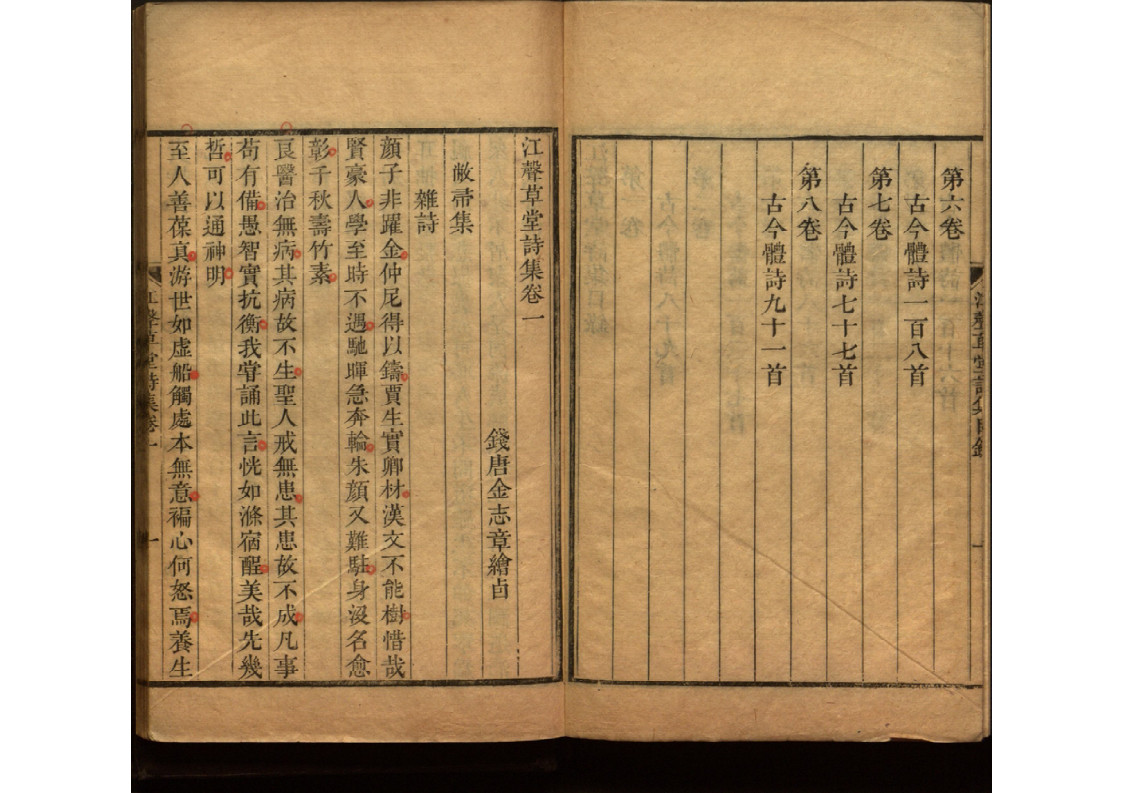 第六卷
古今體詩一百八首
第七卷
古今體詩七十七首
第八卷
古今體詩九十一首
江聲草堂詩集卷一
錢唐金志章繪卣
敝帚集
雜詩
顔子非躍金仲尼得以鑄賈生實卿材漢文不能樹惜哉
賢豪人學至時不遇馳暉急奔輪朱顔又難駐身沒名愈
彰千秋壽竹素
良醫治無病其病故不生聖人戒無患其患故不成凡事
苟有備愚智實抗衡我嘗誦此言恍如滌宿酲美哉先幾
哲可以通神明
至人善葆真游世如虛船觸處本無意褊心何怒焉養生
江聲草堂詩集卷一
一